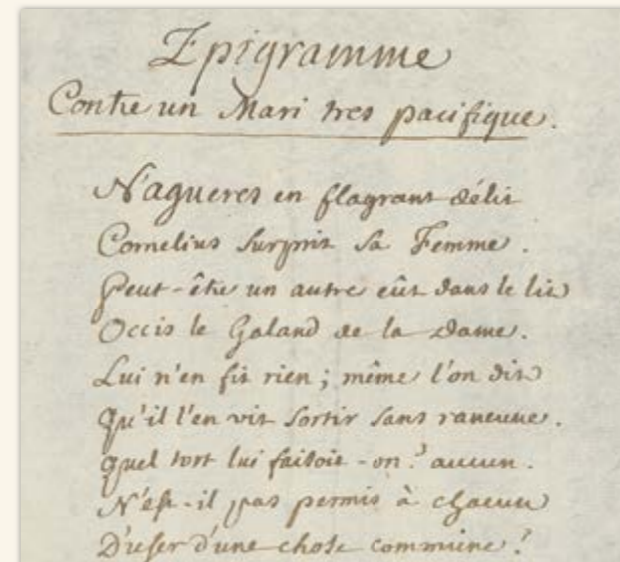 Epigramme
Contre un Mari tres pacifique.
N'agueres en flagrant délit
Cornelius surprit sa Femme.
Peut-être un autre eût dans le lit
Occis le Galand de la Dame.
Lui n'en fit rien; même l'on dit
Qu'il l'en vit sortir sans rancune.
quel tort lui faisoit-on? aucun.
N'est-il pas permis à chacun
D'user d'une chose commune?